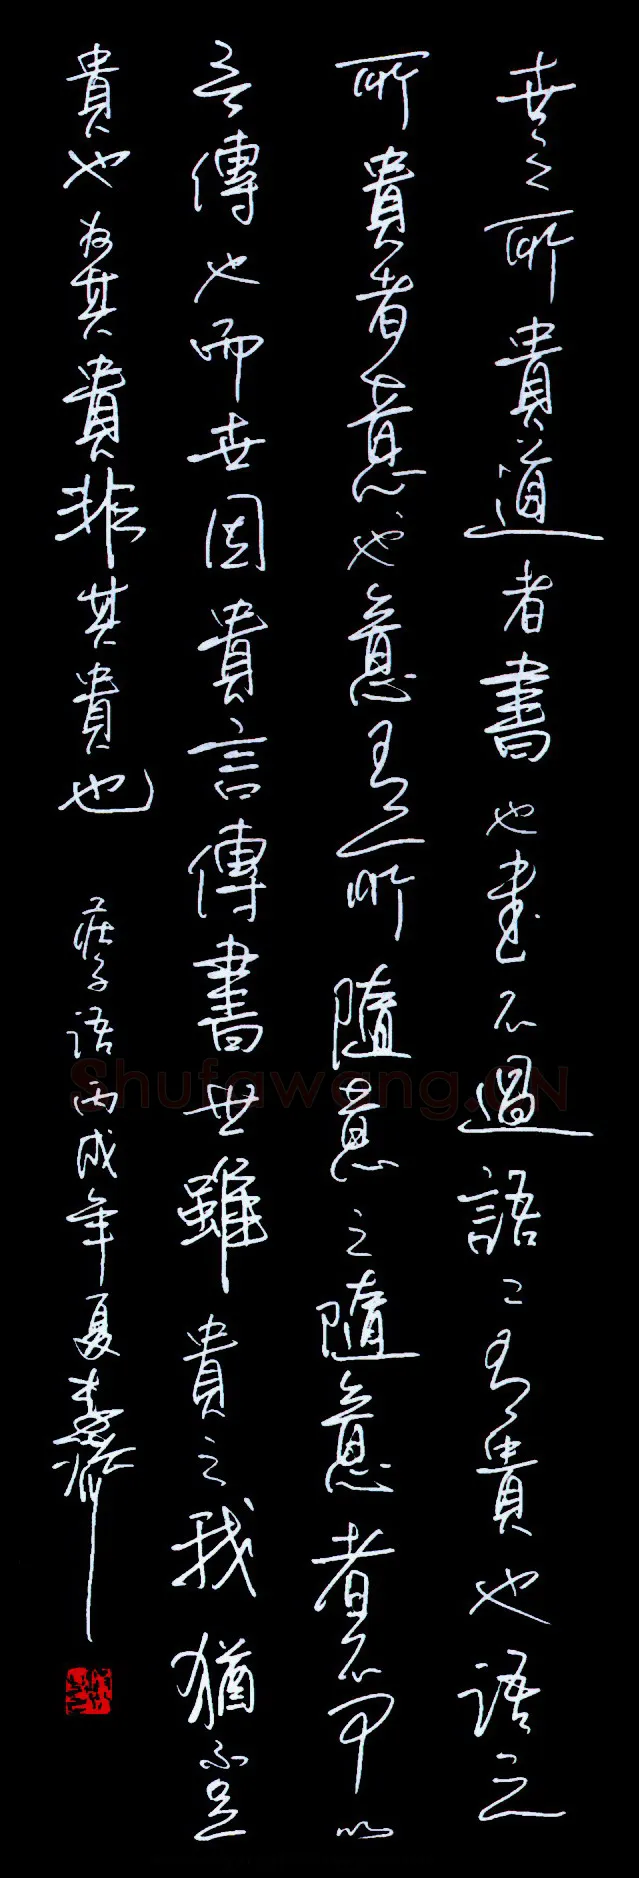 世之所貴道者書也書不過語〻有貴也語之
所貴者意也意有所隨意之隨意者不可以
言傳也而世因貴言傳書世雖貴之我猶不足
貴也為其貴非其貴也 莊子語 丙戌年夏
Shufawang.CN